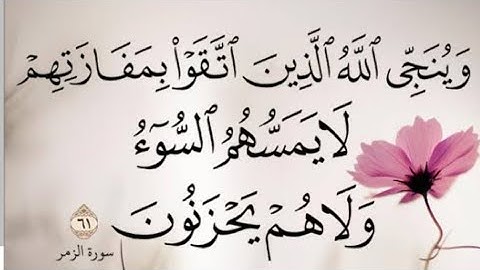 وَيُنَجِّى ٱللَّهُ ٱلَّذِينَ ٱتَّقَوْا۟ بِمَفَازَتِهِمْ
لَا يَمَسُّهُمُ ٱلسُّوٓءُ
وَلَا هُمْ يَحْزَنُونَ ٦١
سورة الزمر